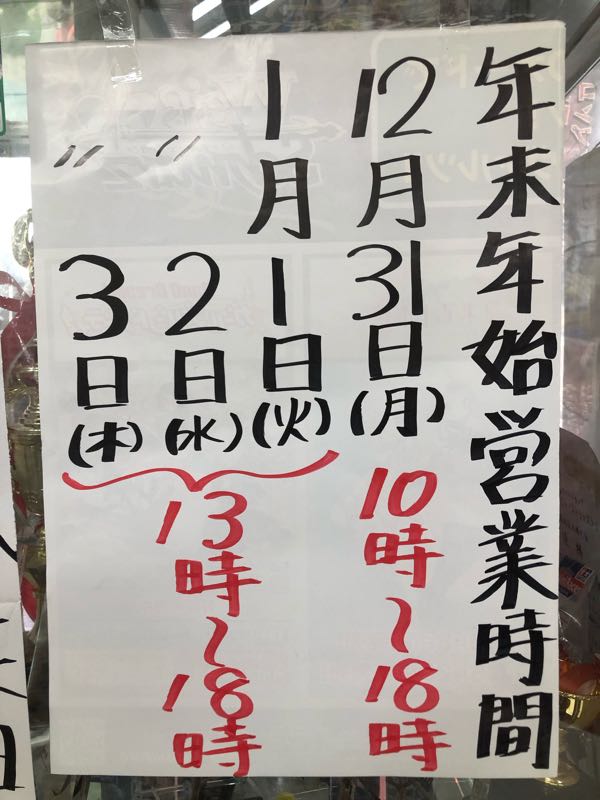 年末年始営業時間
12月31日(月) 10時~18時
1月1日(火)
〃 2日(水)
〃 3日(木)
13時~18時